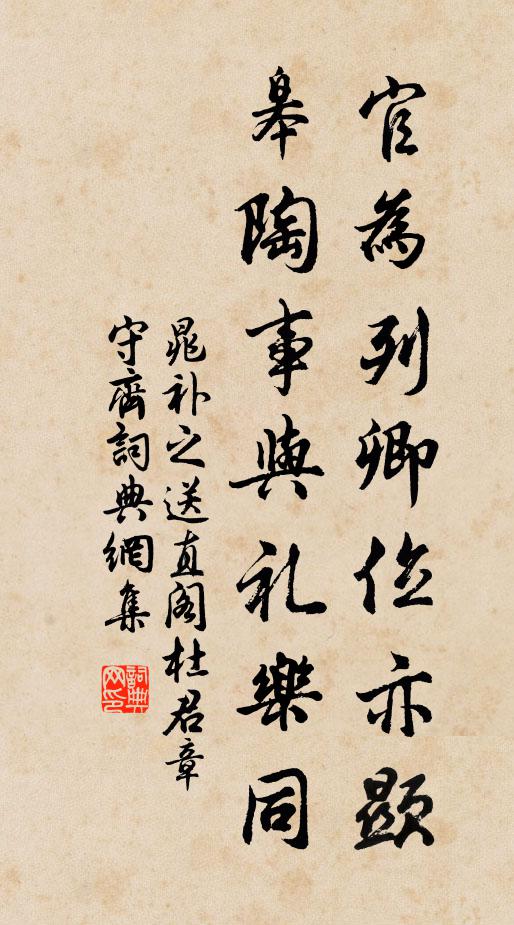 官為列卿位亦顯
皋陶事與礼樂同
晁补之送直阁杜君章
守齊詞典網集
詞典网印